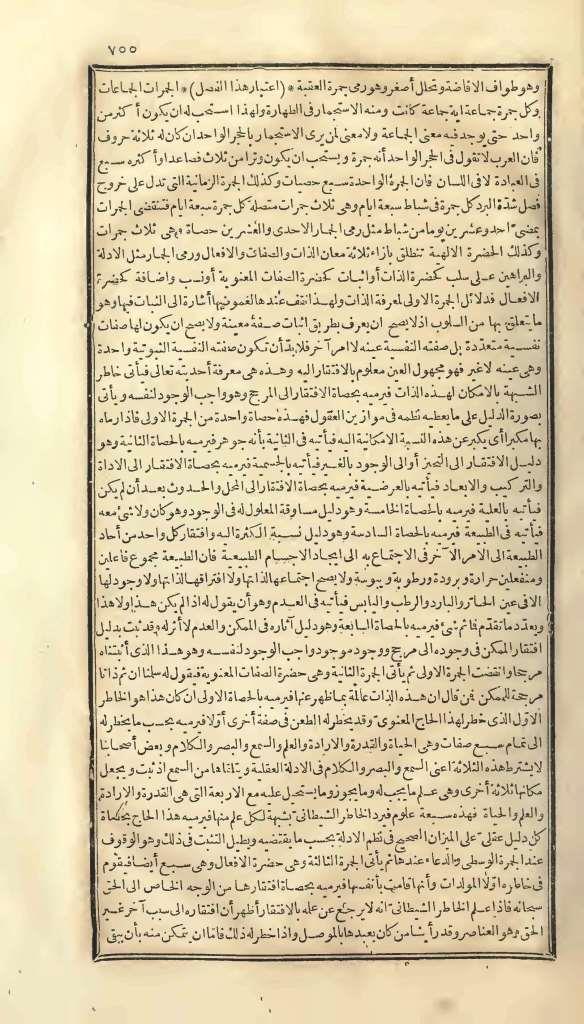 ٧٥٥
وهو طواف الافاضة وتحلل أصغر وهو رمى جمرة العقبة * (اعتبار هذا الفصل) * الجمرات الجماعات
وكل جمرة جماعة اية جماعة كانت ومنه الاستجمار فى الطهارة ولهذا استحب له ان يكون أكثر من
واحد حتى يوجد فيه معنى الجماعة ولا معنى لمن يرى الاستجمار بالحجر الواحد ان كان له ثلاثة حروف
فان العرب لا تقول فى الحجر الواحد أنه جمرة ويستحب ان يكون وترا من ثلاث فصاعدا وأكثره سبع
فى العبادة لا فى اللسان فان الجمرة الواحدة سبع حصيات وكذلك الجمرة الزمانية التى تدل على خروج
فصل شدّة البرد كل جمرة فى شباط سبعة ايام وهى ثلاث جمرات متصلة كل جمرة سبعة ايام فتنقضى الجمرات
بمضىّ احد وعشرين يوما من شباط مثل رمى الجمار الاحدى والعشرين حصاة وهى ثلاث جمرات
وكذلك الحضرة الالهية تنطلق بازاء ثلاثة معان الذات والصفات والافعال ورمى الجمار مثل الادلة
والبراهين على سلب كحضرة الذات أو اثبات كحضرة الصفات المعنوية أو نسب واضافة كحضرة
الافعال فدلائل الجمرة الاولى لمعرفة الذات ولهذا نقف عندها لغموضها أشارة الى الثبات فيها وهو
ما يتعلق بها من السلوب اذ لا يصح ان يعرف بطريق اثبات صفة معينة ولا يصح ان يكون لها صفات
نفسية متعدّدة بل صفته النفسية عينه لا امر آخر فلا بدّ أن تكون صفته النفسية الثبوتية واحدة
وهى عينه لا غير فهو مجهول العين معلوم بالافتقار اليه وهذه هى معرفة أحديته تعالى فيأتى خاطر
الشبهة بالامكان لهذه الذات فيرميه بحصاة الافتقار الى المرجح وهو واجب الوجود لنفسه ويأتى
بصورة الدليل على ما يعطيه نظمه فى موازين العقول فهذه حصاة واحدة من الجمرة الاولى فاذا رماه
بها مكبرا أى يكبر عن هذه النسبة الامكانية اليه فيأتيه فى الثانية بأنه جوهر فيرميه بالحصاة الثانية وهو
دليل الافتقار الى التحيز أو الى الوجود بالغير فيأتيه بالجسمية فيرميه بحصاة الافتقار الى الاداة
والتركيب والابعاد فيأتيه بالعرضية فيرميه بحصاة الافتقار الى المحل والحدوث بعد أن لم يكن
فيأتيه بالعلية فيرميه بالحصاة الخامسة وهو دليل مساوقة المعلول له فى الوجود وهو كان ولا شئ معه
فيأتيه فى الطبيعة فيرميه بالحصاة السادسة وهو دليل نسبة الكثرة اليه وافتقار كل واحد من آحاد
الطبيعة الى الامر الآخر فى الاجتماع به الى ايجاد الاجسام الطبيعية فان الطبيعة مجموع فاعلين
ومنفعلين حرارة وبرودة ورطوبة ويبوسة ولا يصح اجتماعها لذاتها ولا افتراقها لذاتها ولا وجود لها
الا فى عين الحارّ والبارد والرطب واليابس فيأتيه فى العدم وهو أن يقول له اذا لم يكن هذا ولا هذا
ويعدّد ما تقدّم فما ثم شئ فيرميه بالحصاة السابعة وهو دليل آثاره فى الممكن والعدم لا أثر له وقد ثبت بدليل
افتقار الممكن فى وجوده الى مرجح ووجود موجود واجب الوجود لنفسه وهو هذا الذى أثبتناه
مرجحا وانقضت الجمرة الاولى ثم يأتى الجمرة الثانية وهى حضرة الصفات المعنوية فيقول له سلمنا ان ثم ذاتا
مرجحة للممكن فمن قال ان هذه الذات عالمة بما ظهر عنها فيرميه بالحصاة الاولى ان كان هذا هو الخاطر
الاوّل الذى خطر لهذا الحاج المعنوى وقد يخطر له الطعن فى صفة أخرى أوّلا فيرميه بحسب ما يخطر له
الى تمام سبع صفات وهى الحياة والقدرة والارادة والعلم والسمع والبصر والكلام وبعض أصحابنا
لا يشترط هذه الثلاثة اعنى السمع والبصر والكلام فى الادلة العقلية ويتلقاها من السمع اذ ثبت ويجعل
مكانها ثلاثة أخرى وهى علم ما يجب له وما يجوز وما يستحيل عليه مع الاربعة التى هى القدرة والارادة
والعلم والحياة فهذه سبعة علوم فيرد الخاطر الشيطانى بشبهة لكل علم منها فيرميه هذا الحاج بحصاة
كل دليل عقلىّ على الميزان الصحيح فى نظم الادلة بحسب ما يقتضيه ويطيل التثبت فى ذلك وهو الوقوف
عند الجمرة الوسطى والدعاء عندها ثم يأتى الجمرة الثالثة وهى حضرة الافعال وهى سبع أيضا فيقوم
فى خاطره اوّلا المولدات وأنها قامت بأنفسها فيرميه بحصاة افتقارها من الوجه الخاص الى الحق
سبحانه فاذا علم الخاطر الشيطانىّ انه لا يرجع عن علمه بالافتقار أظهر أن افتقاره الى سبب آخر غير
الحق وهو العناصر وقد رأينا من كان يعبدها بالموصل واذا خطر له ذلك فاما ان يتمكن منه بأن ينفى